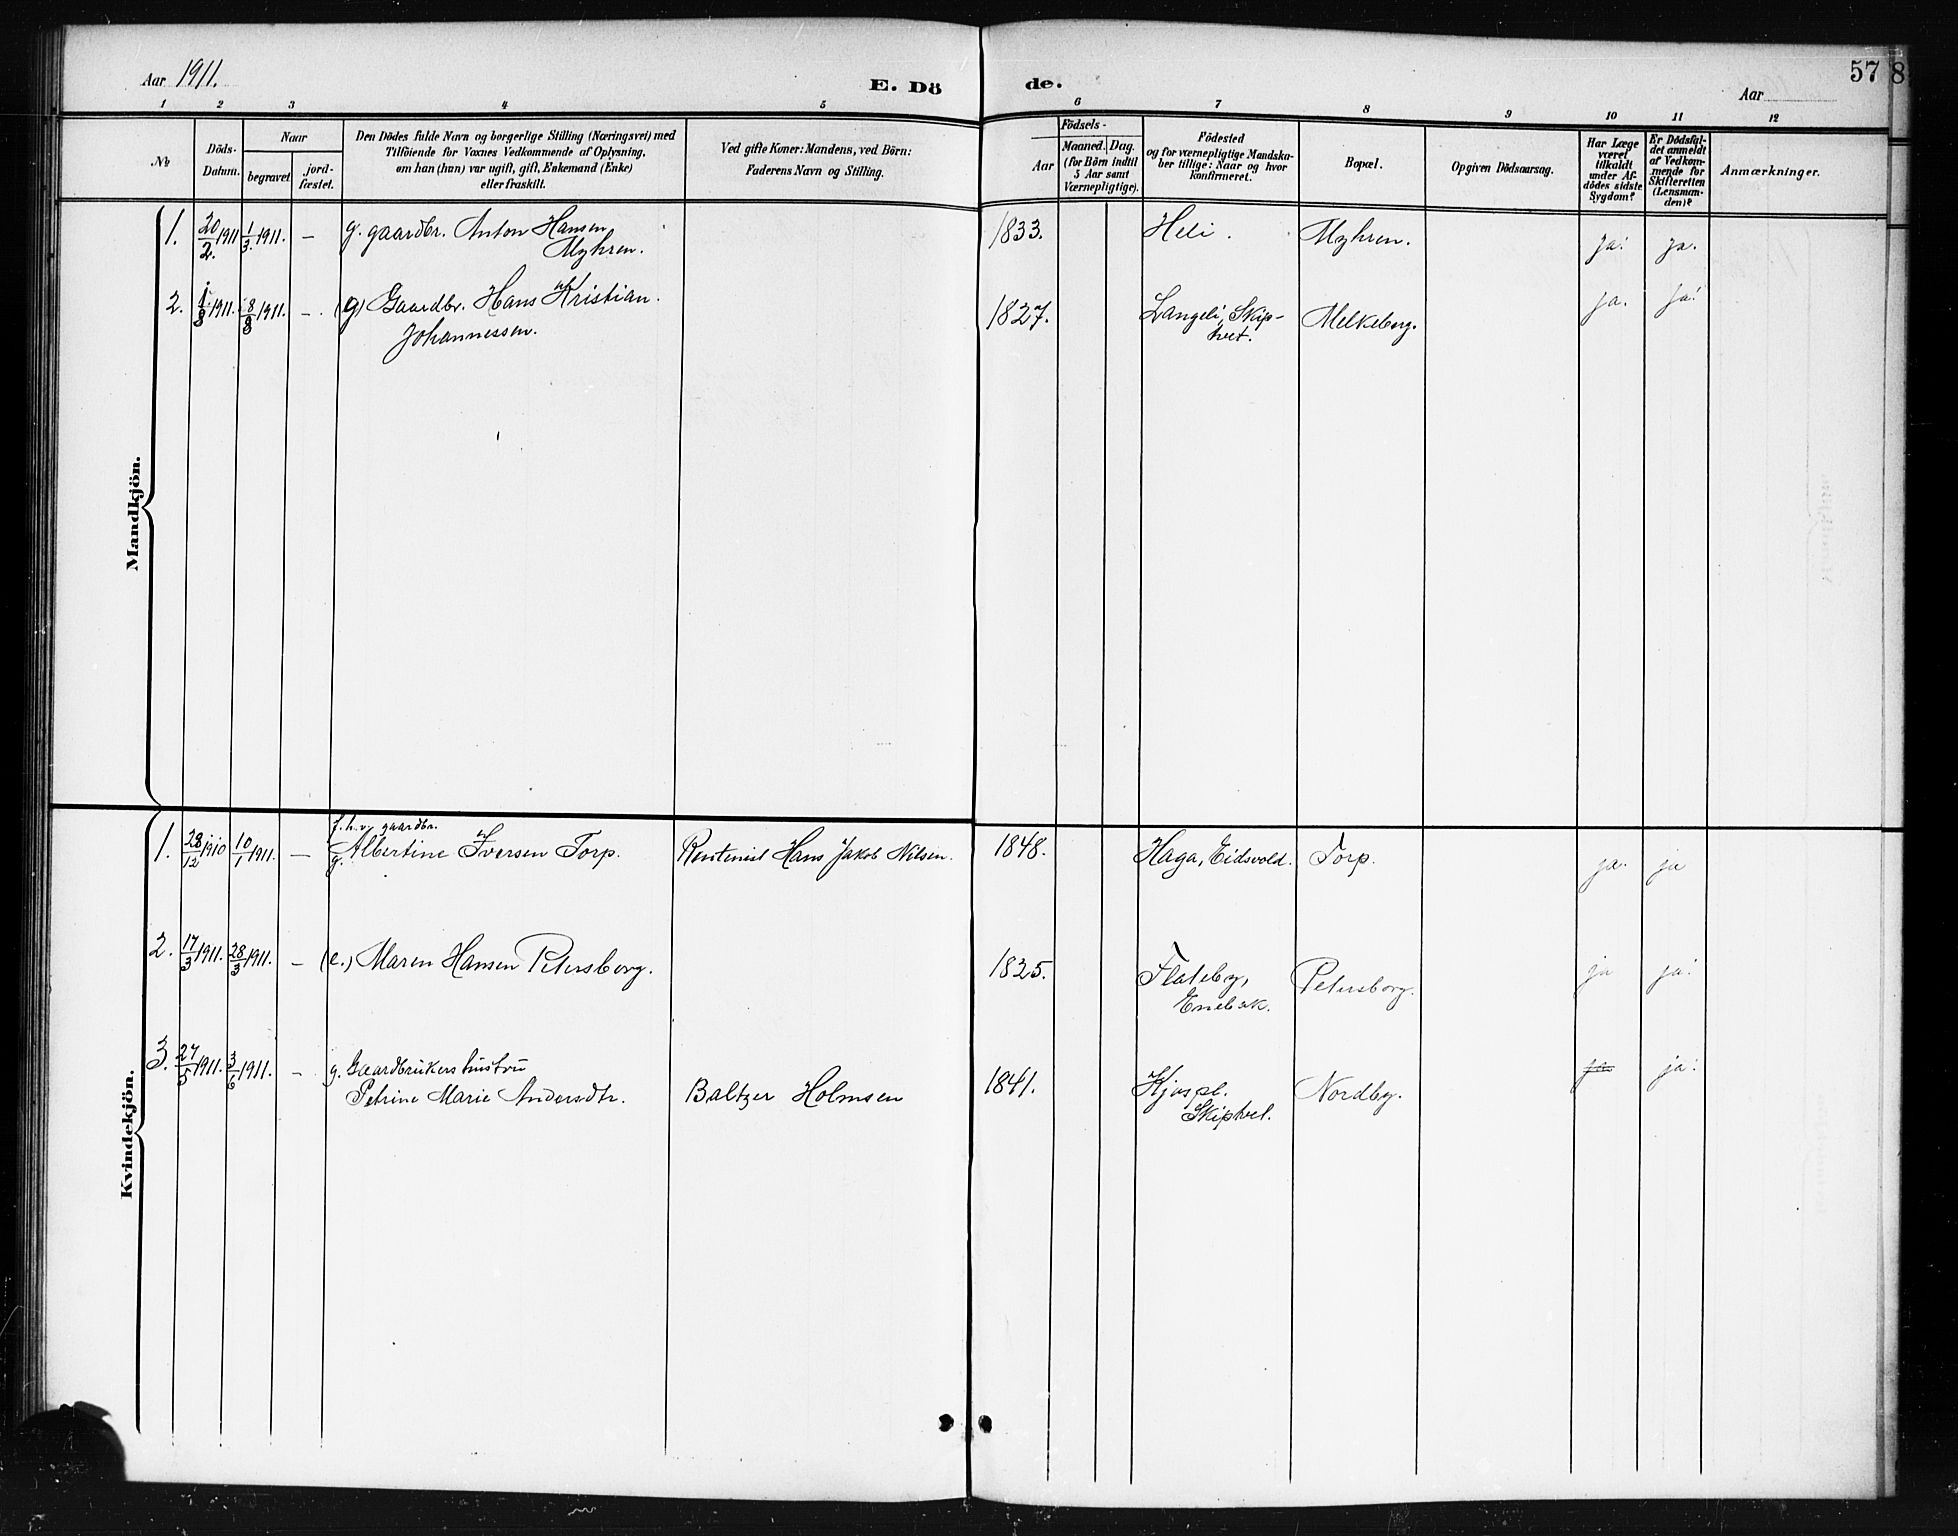 Aar 1911.
E. Dö
de.
57
8
Aar
1 2 3 4 5 6 7 8 9 10 11 12
No
Döds-
Datum.
Naar
begravet
jord-
fæstet.
Den Dödes fulde Navn og borgerlige Stilling (Næringsvei) med
Tilföiende for Voxnes Vedkommende af Oplysning,
om han (hun) var ugift, gift, Enkemand (Enke)
eller fraskilt.
Ved gifte Koner: Mandens, ved Börn:
Faderens Navn og Stilling.
Födsels-
Aar
Maaned.
Dag.
(for Börn indtil
5 Aar samt
Værnepligtige).
Födested
og for værnepligtige Mandska-
ber tillige: Naar og hvor
konfirmeret.
Bopæl.
Opgiven Dödsaarsag.
Har Læge
været
tilkaldt
under Af-
dödes sidste
Sygdom?
Er Dödsfal-
det anmeldt
af Vedkom-
mende for
Skifteretten
(Lensman-
den)?
Anmærkninger.
Mandkjön.
1. 20/2 1911 1/3 1911. — g. gaardbr. Anton Hansen 1833. Heli. Myhren. ja. ja.
Myhren.
2. 1911. 8/8 1911. — (g) Gaardbr. Hans Kristian 1827. Langeli, Skip- Melkeberg. ja. ja.
Johannessen. tvet.
Kvindekjön.
f.h.v. gaardbr.
1. 28/12 1910 10/1 1911. — g. Albertine Iversen Torp. Rentenist Hans Jakob Nilsen. 1848. Haga, Eidsvold. Torp. ja. ja
2. 17/3 1911. 28/3 1911. — (e.) Maren Hansen Petersborg. 1825. Flateby, Petersborg. ja ja.
Enebak.
3. 27/5 1911. 3/6 1911. — g. Gaardbrukers hustru
Petrine Marie Andersdtr. Baltzer Holmsen 1841. Kjospl. Nordby. ja. ja.
Skiptvet.